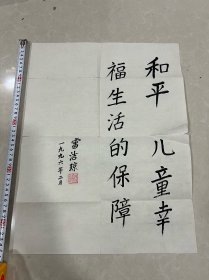 和平 儿童幸
福生活的保障
雷洁琼
一九九六年二月